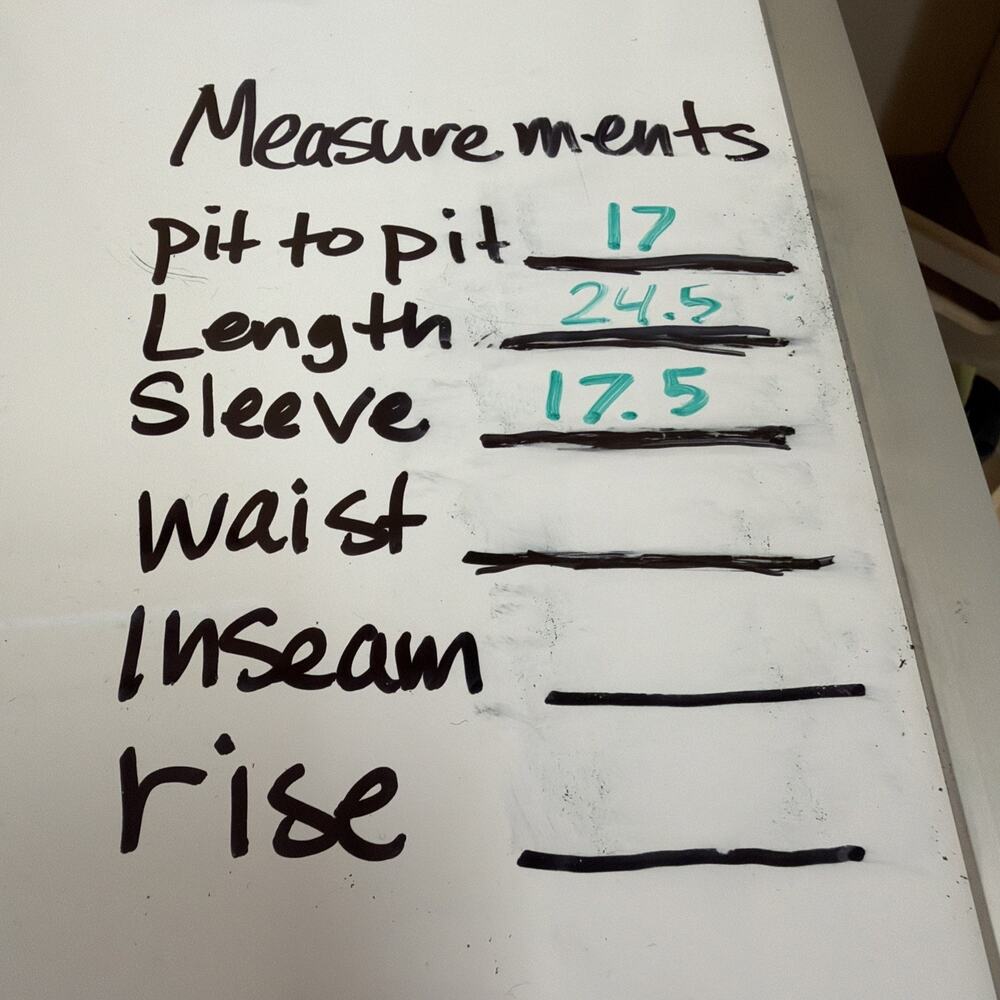 Measurements
pit to pit 17
Length 24.5
Sleeve 17.5
waist
Inseam
rise